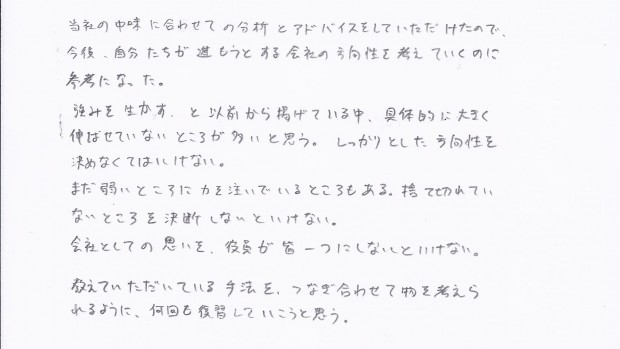 当社の中味に合わせての分析とアドバイスをしていただけたので、
今後、自分たちが進もうとする会社の方向性を考えていくのに
参考になった。
強みを生かす、と以前から掲げている中、具体的に大きく
伸ばせていないところが多いと思う。しっかりとした方向性を
決めなくてはいけない。
まだ弱いところに力を注いでいるところもある。捨て切れてい
ないところを決断しないといけない。
会社としての思いを、役員が皆一つにしないといけない。
教えていただいている手法を、つなぎ合わせて物を考えら
れるように、何回も復習していこうと思う。